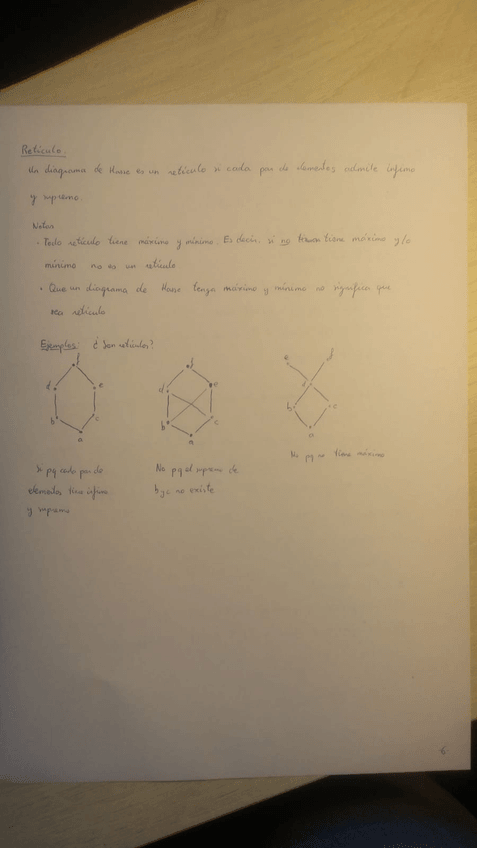 Retículo.
Un diagrama de Hasse es un retículo si cada par de elementos admite ínfimo
y supremo
Notas
· Todo retículo tiene máximo y mínimo. Es decir, si no tiene máximo y/o
mínimo no es un retículo
· Que un diagrama de Hasse tenga máximo y mínimo no significa que
sea retículo
Ejemplos: ¿Son retículos?
f
d e
b c
a
f
d e
b c
a
e f
d
b c
a
Si pq cada par de
elementos tiene ínfimo
y supremo
No pq el supremo de
b y c no existe
No pq no tiene máximo
6